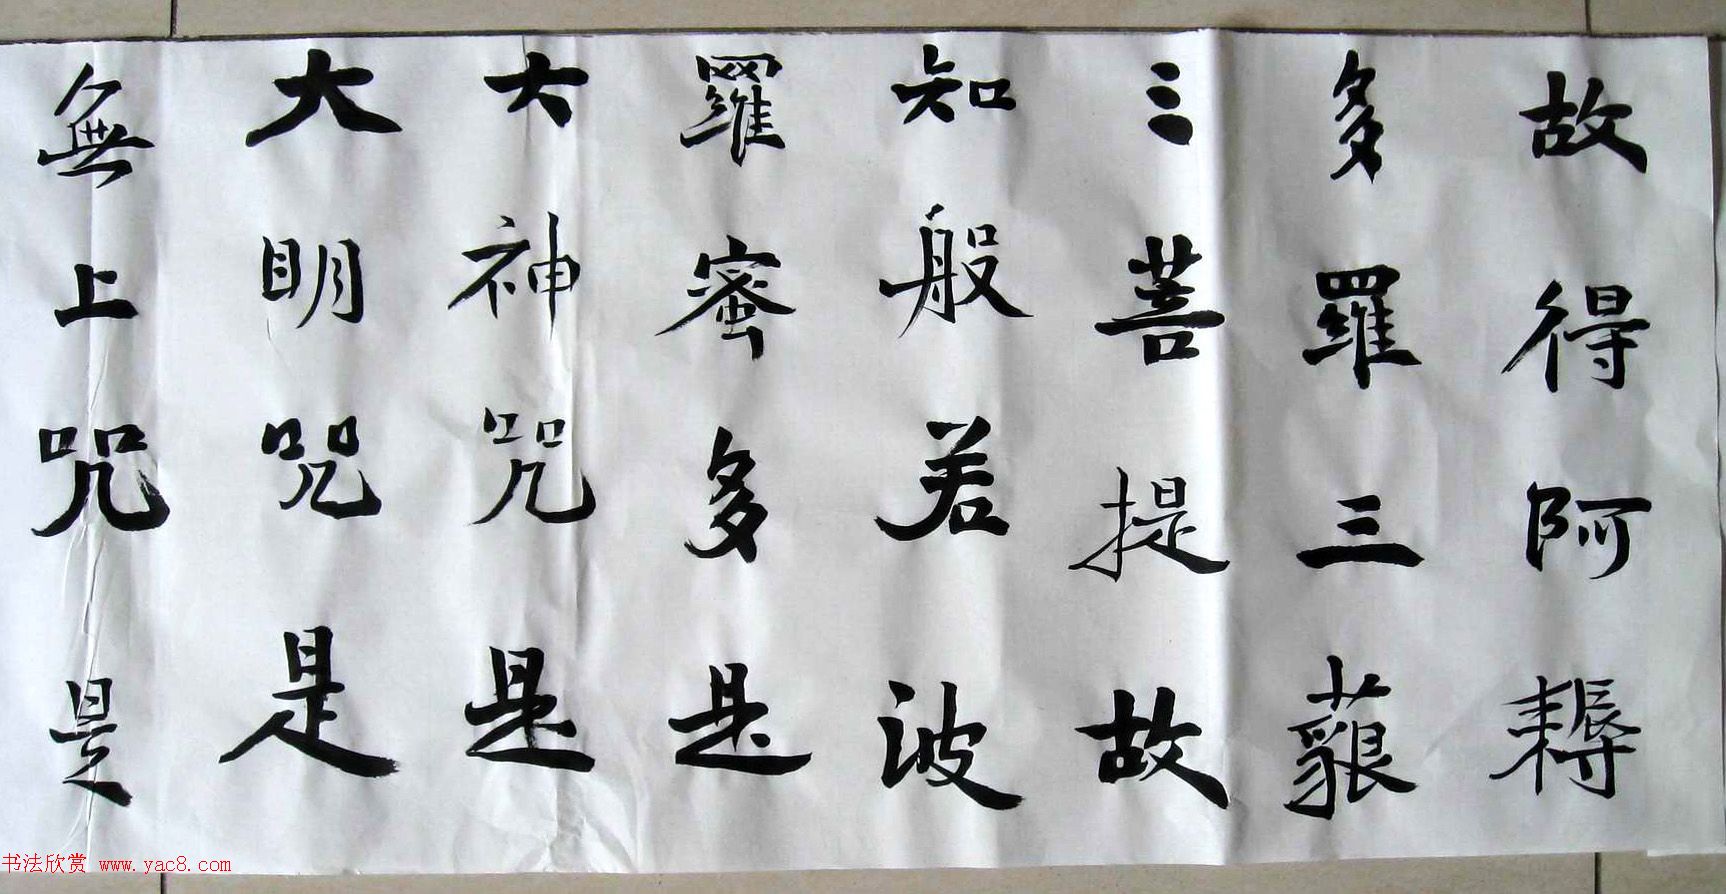 故得阿耨
多羅三藐
三菩提故
知般若波
羅蜜多是
大神咒是
大明咒是
無上咒是
书法欣赏 www.yac8.com